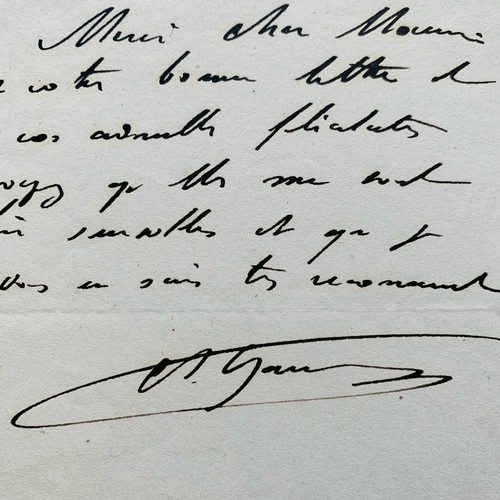 Merci cher Monsieur
votre bonne lettre et
vos aimables félicitations
croyez qu'elles me sont
sensibles et que je
vous en suis très reconnaissant